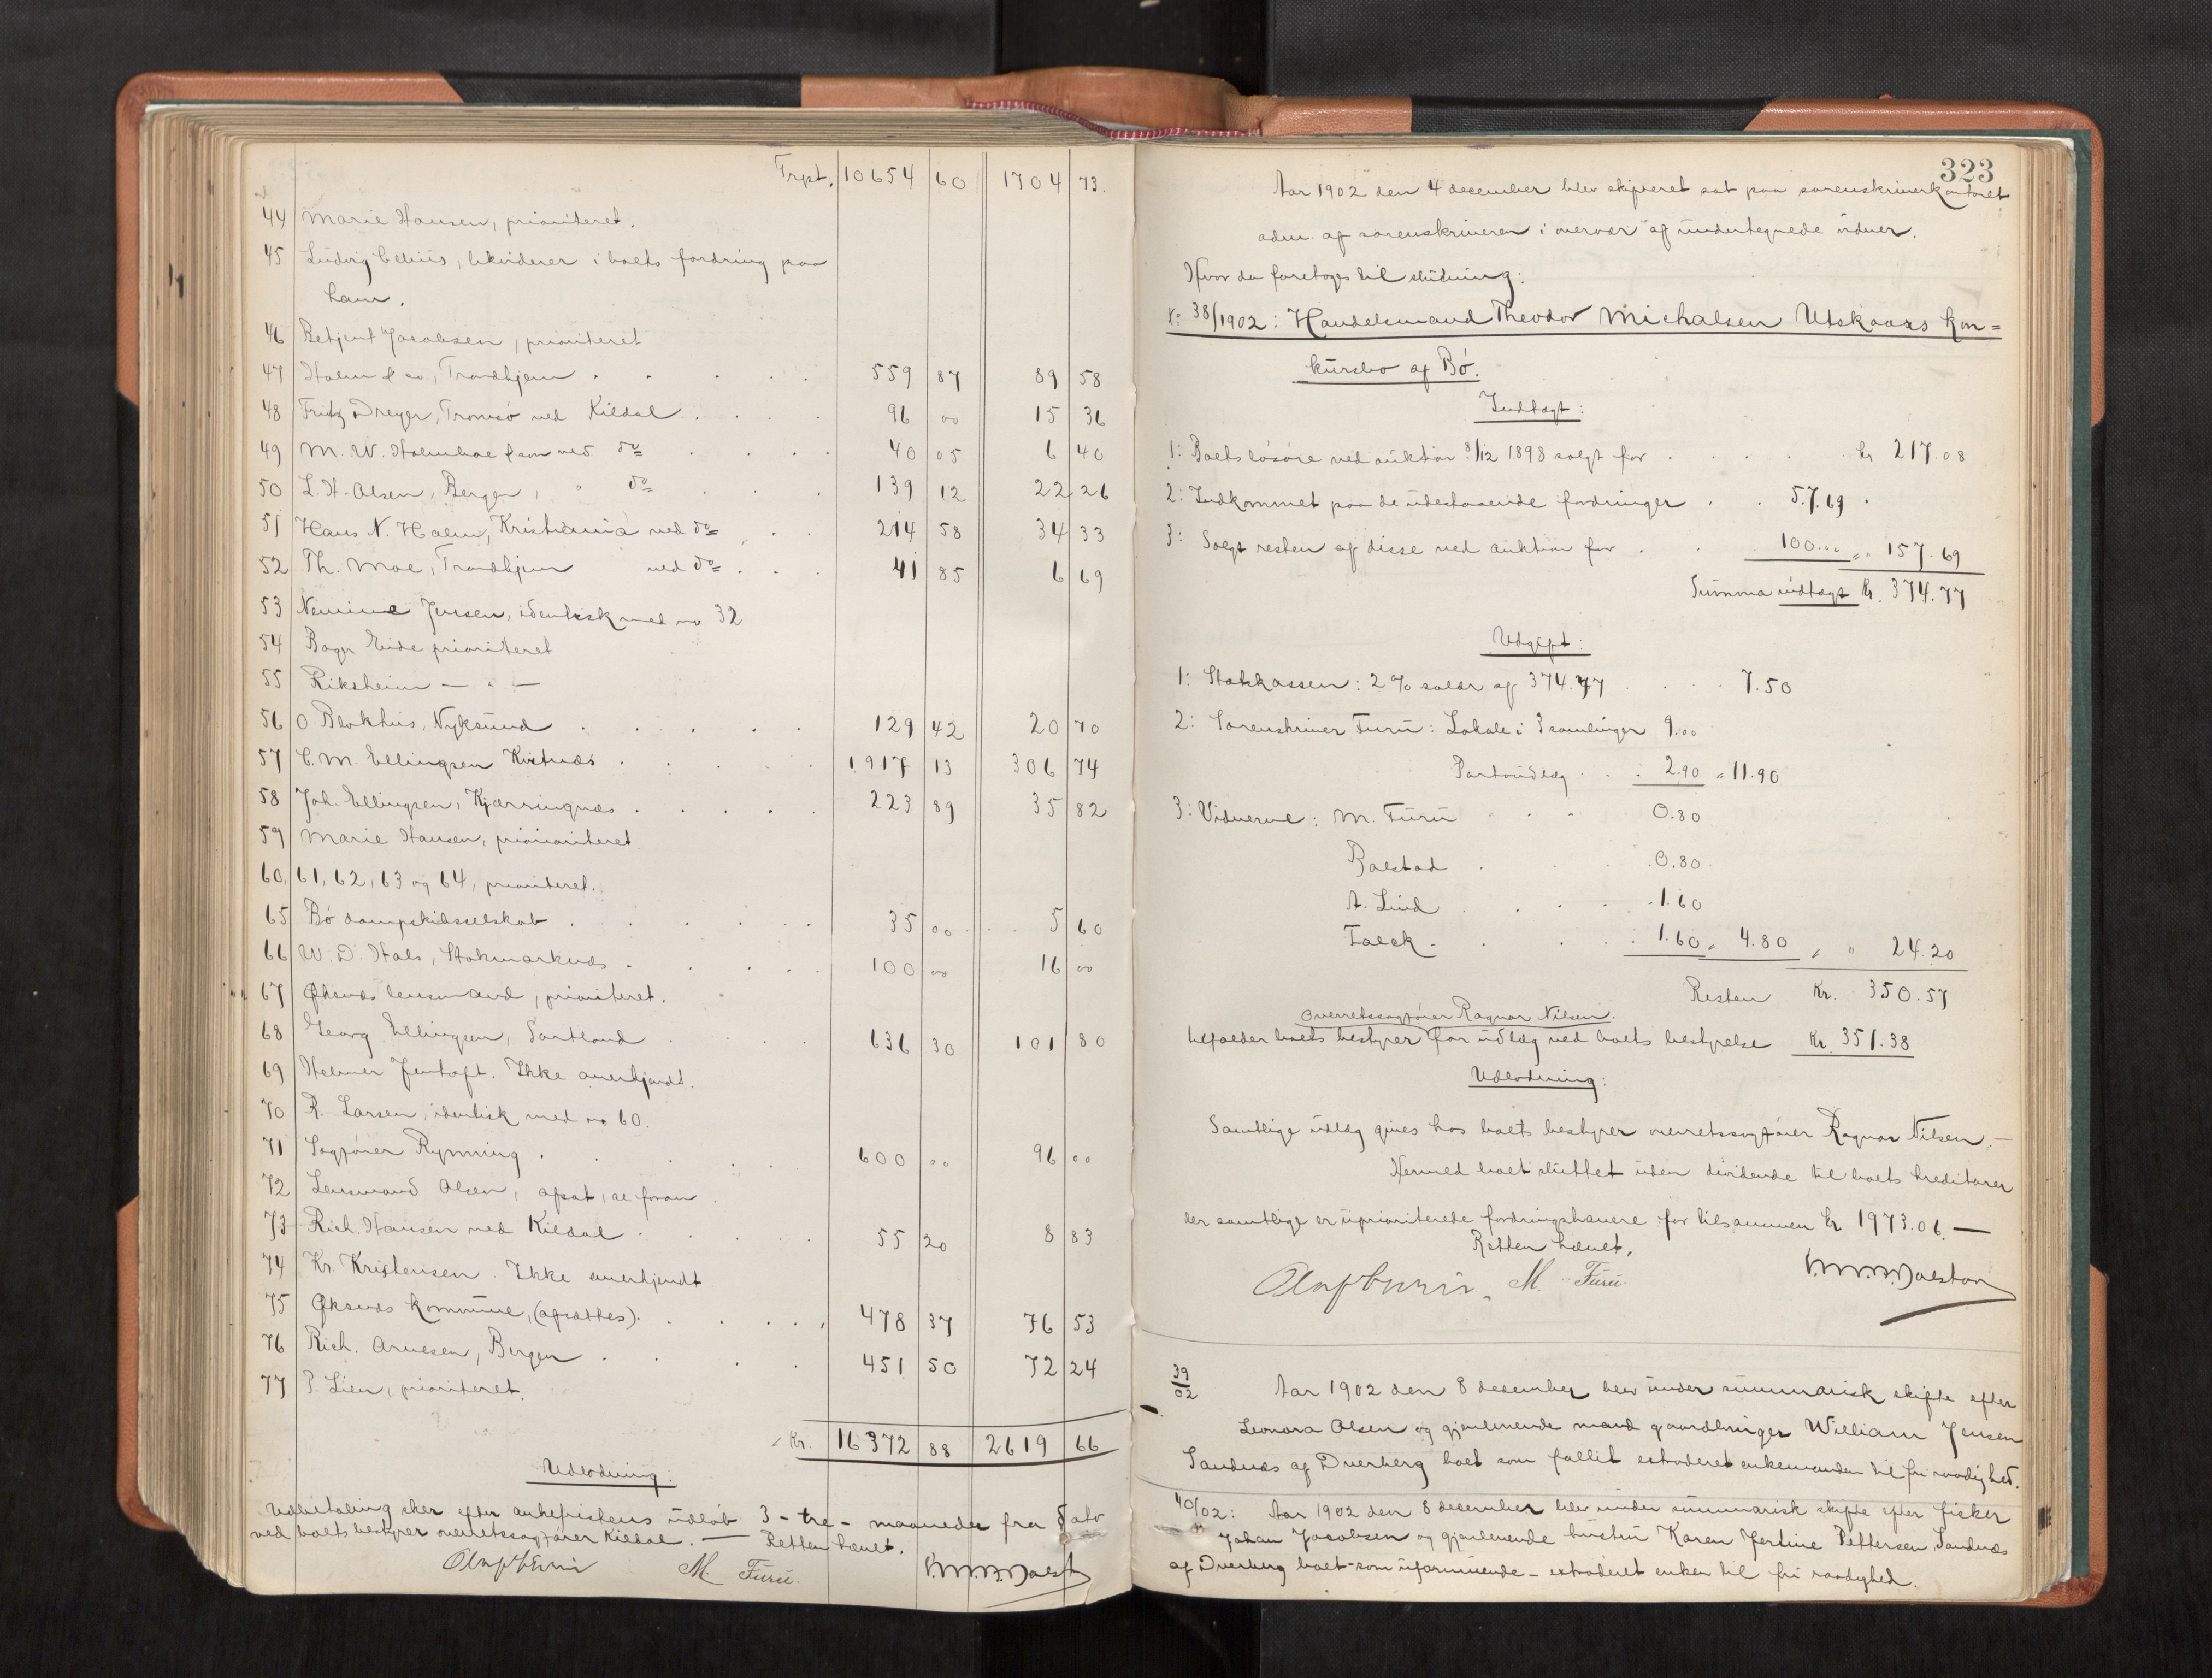 Trpt. 10654 60 1704 73.
44 Marie Hansen, prioriteret.
45 Ludvig Celius, likviderer i boets fordring paa
ham.
46 Betjent Jacobsen, prioriteret
47 Holm & co, Trondhjem . . . . 559 87 89 58
48 Fritz Dreyer, Tromsö ved Kildal . . . 96 00 15 36
49 M. W. Holmboe & søn ved do . . . 40 05 6 40
50 L. H. Olsen, Bergen, " do . . . 139 12 22 26
51 Hans N. Holm, Kristiania ved do . . 214 58 34 33
52 Th. Moe, Trondhjem ved do . . . 41 85 6 69
53 Jensen, identisk med no 32
54 Eide prioriteret
55 Riksheim — " —
56 O Blokhus, Nyksund . . . . . 129 42 20 70
57 C. M. Ellingsen . . . . . 1917 13 306 74
58 Joh. Ellingsen, Kjærringnæs . . . . 223 89 35 82
59 Marie Hansen, prioriteret
60, 61, 62, 63 og 64, prioriteret.
65 Bö dampskibsselskab . . . . . 35 00 5 60
66 W. D. Hals, Stokmarknæs . . . . 100 00 16 00
67 Øksnes lensmand, prioriteret.
68 Georg Ellingsen, Sortland . . . 636 30 101 80
69 Helmer Jentoft. Ikke anerkjendt.
70 R. Larsen, identisk med no 60.
71 Sagfører Rynning . . . . 600 00 96 00
72 Lensmand Olsen, afsat, se foran
73 Rich. Hansen ved Kildal . . . . 55 20 8 83
74 Kr. Kristensen. Ikke anerkjendt
75 Øksnes kommune, (afsættes) . . . . 478 37 76 53
76 Rich. Arnesen, Bergen . . . . 451 50 72 24
77 P. Lien, prioriteret.
Kr. 16372 88 2619 66
Udlodning:
Udbetaling sker efter ankefristens udløb 3 - tre - maaneder fra dato
ved boets bestyrer overretssagfører Kildal. — Retten hævet.
M Furu.
323
Aar 1902 den 4 december blev skifteret sat paa sorenskriverkontoret
adm. af sorenskriveren i overvær af undertegnede vidner.
Hvor da foretoges til slutning:
No 38/1902: Handelsmand Theodor Michalsen Utskaars kon=
kursbo af Bö.
Indtægt:
1: Boets løsøre ved auktion 8/12 1898 solgt for . . . . . kr 217.08
2: Indkommet paa de udestaaende fordringer . . 57.69 .
3: Solgt resten af disse ved auktion for . . 100.00 " " 157.69
Summa indtægt Kr. 374.77
Udgift:
1: Statskassen: 2 % saldr af 374.77 . . . . 7.50
2: Sorenskriver Furu: Lokale i 3 samlinger 9.00
Portoudlæg . . . 2.90 " 11.90
3: Vidnerne: M. Furu . . . 0.80
Balstad . . . 0.80
A. Lind . . . . 1.60
Falck . . . . 1.60 " 4.80 " " 24.20
Resten Kr. 350.57
overretssagfører Ragnar Nilsen.
tilfalder boets bestyrer for udlæg ved boets bestyrelse Kr. 351.38
Udlodning:
Samtlige udlæg gives hos boets bestyrer overretssagfører Ragnar Nilsen. —
Hermed boet sluttet uden dividende til boets kreditorer
der samtlige er uprioriterede fordringshavere for tilsammen kr. 1973.06. —
Retten hævet.
M. Furu.
39/02 Aar 1902 den 8 desember blev under summarisk skifte efter
Leonora Olsen og gjenlevende mand gaardbruger William Jensen
Sandnæs af Dverberg boet som fallit extraderet enkemanden til fri raadighed.
40/02: Aar 1902 den 8 december blev under summarisk skifte efter fisker
Johan Jacobsen og gjenlevende hustru Karen Jertine Pettersen, Sandnæs
af Dverberg boet - som uformuende - extraderet enken til fri raadighed.